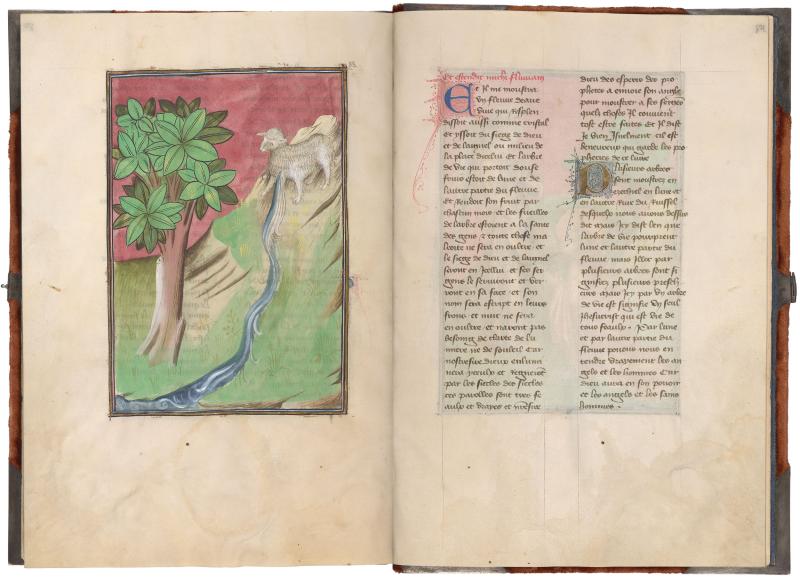 Et ostendit michi fluvium
Et il me moustra
Un fleuve deaue
vive qui resplen
dissoit aussi comme cristal
et yssoit du siege de dieu
et de laignel ou milieu de
la place dicellui et larbre
de vie qui portoit douse
fruis estoit de lune et de
lautre partie du fleuve
et rendoit son fruit par
chascun mois et les fueilles
de larbre estoient a la sante
des gens et toute chose ma
loite ne sera en oultre et
le siege de dieu et de laignel
seront en icellui et ses ser
gens le serviront et ver
ront en sa face et son
nom sera escript en leurs
frons et nuit ne sera
en oultre et navront pas
besoing de clarte de lu
miere ne de souleil Car
nostresire dieux enlumi
nera iceulx et regneront
par les siecles des siecles
ces parolles sont tres fe
aulx et vrayes et nostresire
dieu des esperis des pro
phetes a envoie son angle
pour moustrer a ses sergens
quels choses il convient
tost estre faites Et il dist
Je vien isnelment cil est
beneureux qui garde les pro
pheties de ce livre
Plusieurs arbres
sont moustres en
ezechiel en lune et
en lautre rive du ruissel
desquelx nous avons dessus
dit mais icy dist len que
larbre de vie pourprent
lune et lautre partie du
fleuve mais illec par
plusieurs arbres sont si
gnifiez plusieurs presch
eurs mais icy par un arbre
de vie est signifie un seul
Jhesucrist qui est vie de
tous feaulx Par lune
et par lautre partie du
fleuve pouons nous en
tendre vrayement les an
gels et les hommes Car
dieu aura en son pouoir
et les angels et les sains
hommes